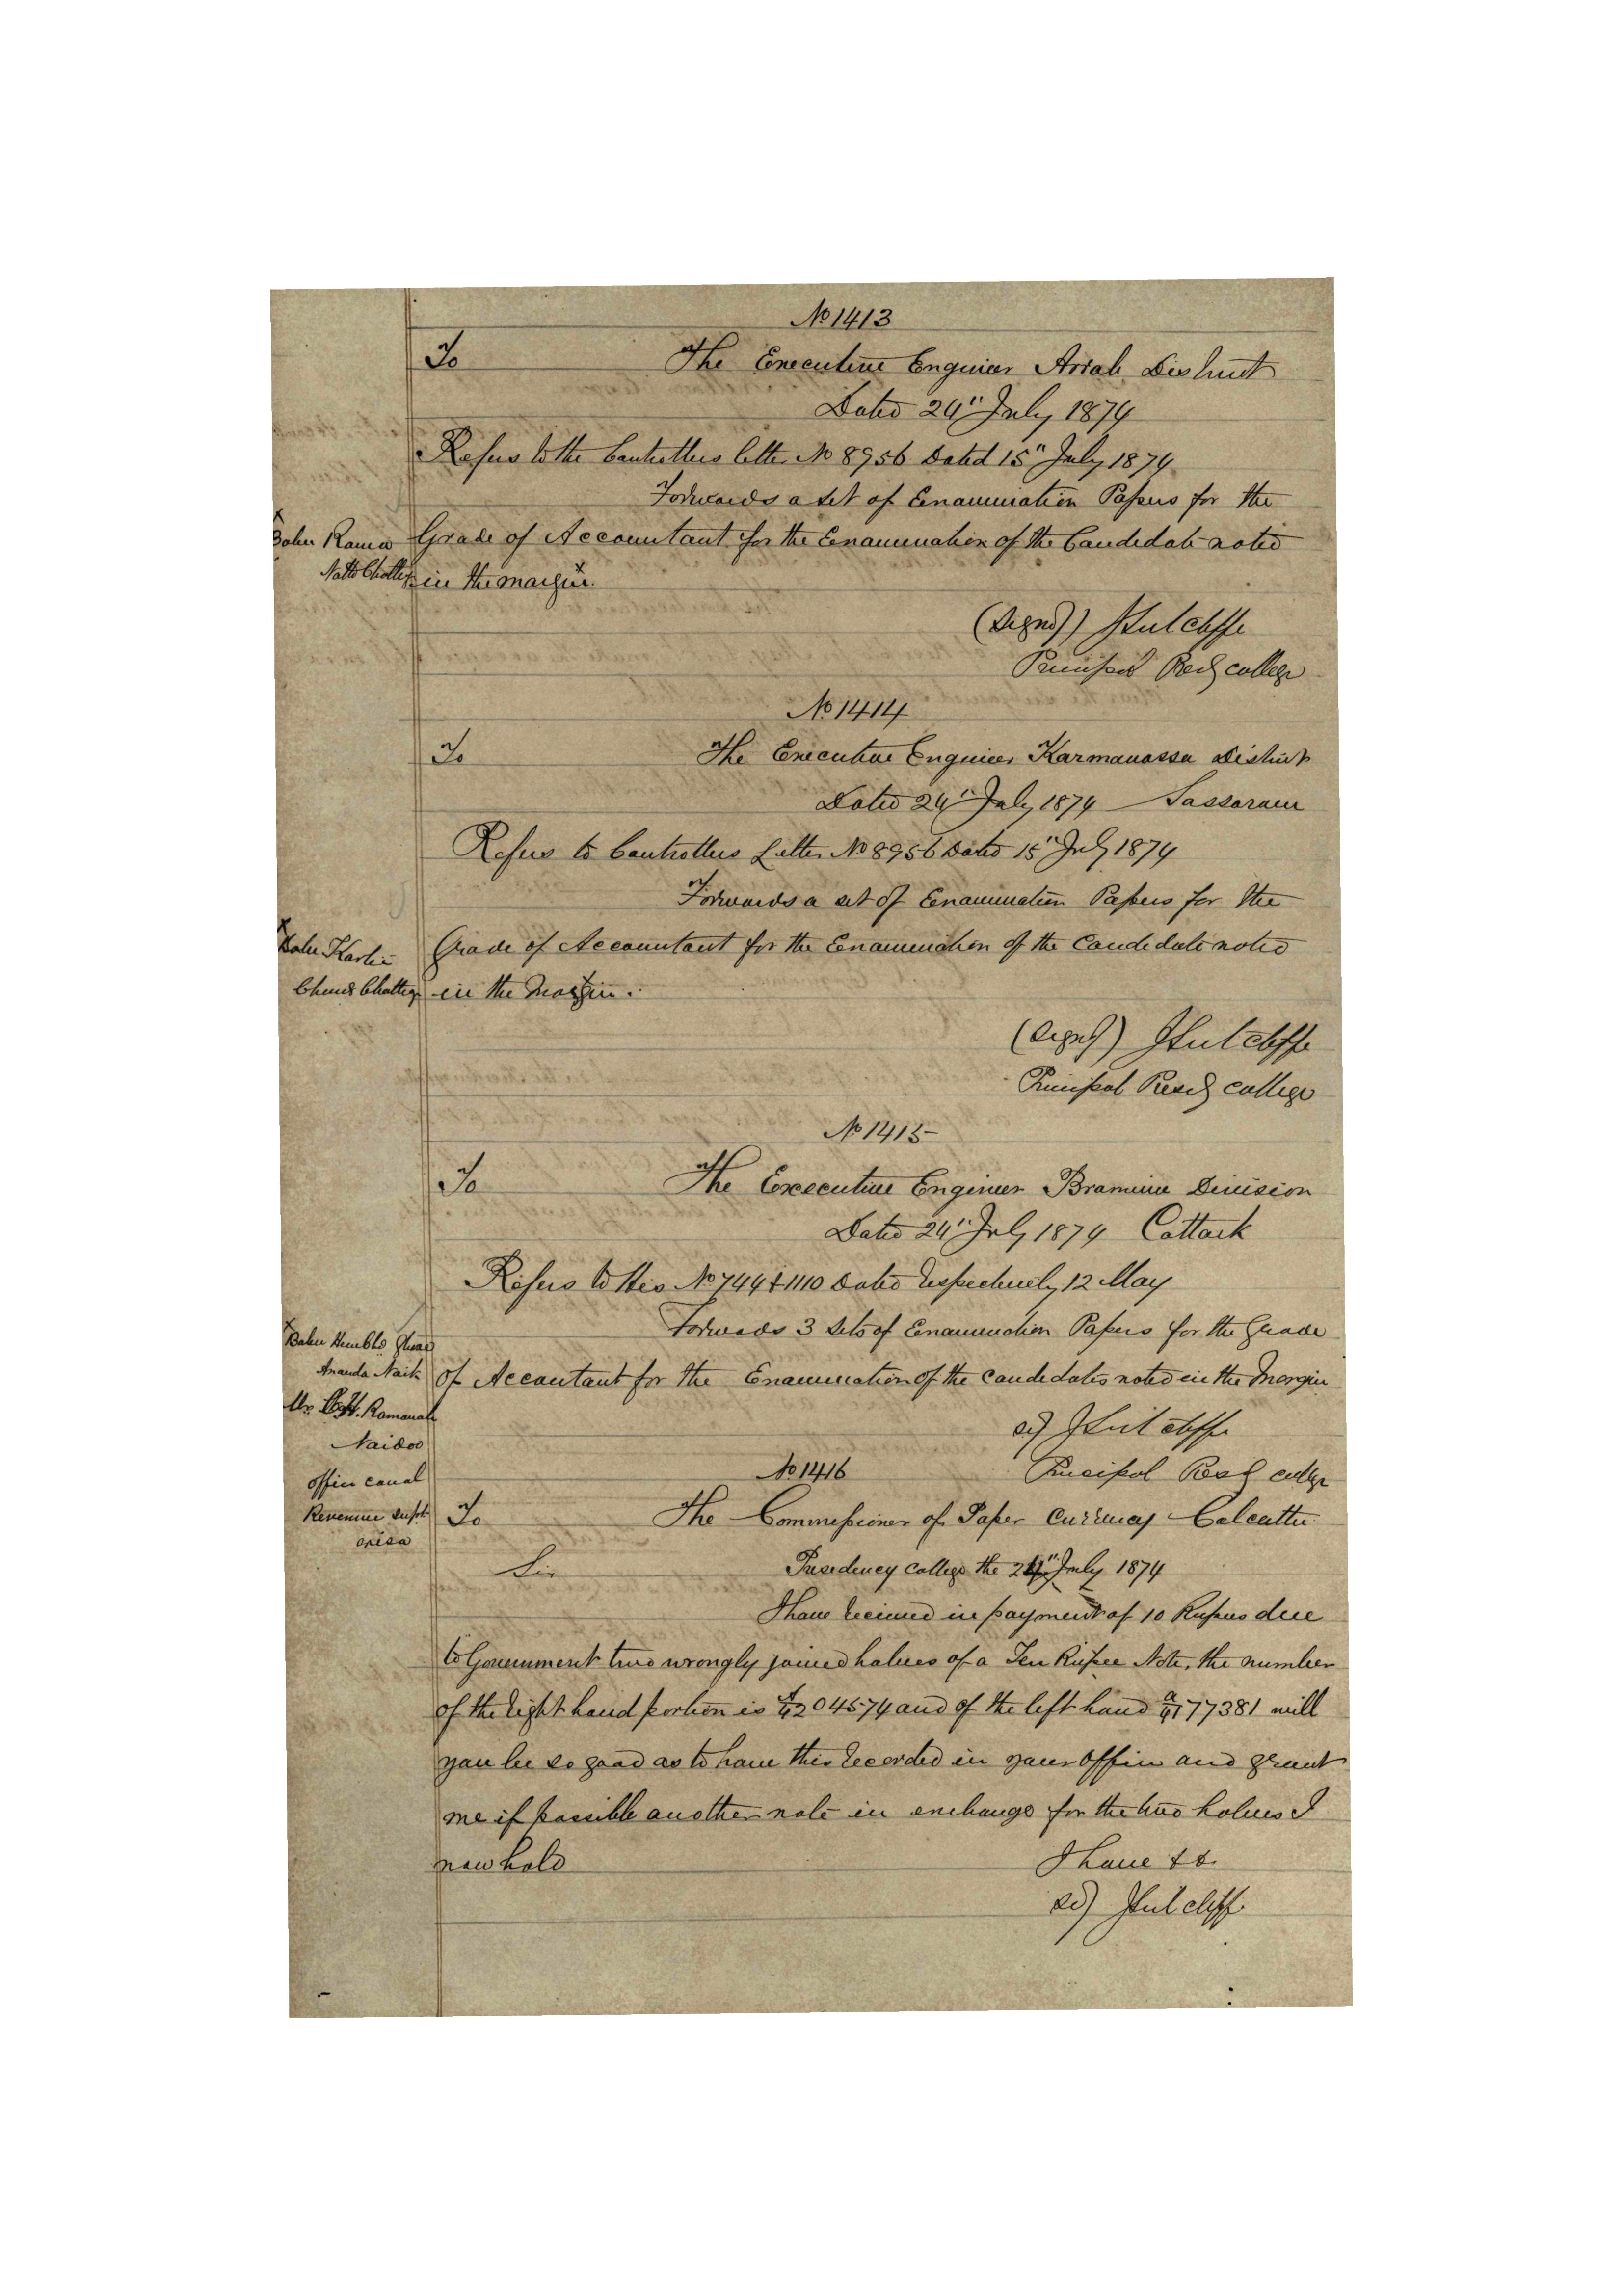 No 1413
To The Executive Engineer Arrah District
Dated 24" July 1874
Refers to the Controllers letter No 8956 Dated 15" July 1874
Forwards a set of Examination Papers for the
Babu Rama Grade of Accountant for the Examination of the Candidate noted
Nath Chatterje in the margin.
(Signd) JSutcliffe
Principal Presy college
No 1414
To The Executive Engineer Karmanassa District
Dated 24" July 1874 Sassaram
Refers to Controllers Letter No 8956 Dated 15" July 1874
Forwards a set of Examination Papers for the
Babu Kartic Grade of Accountant for the Examination of the Candidate noted
Chund Chatterje in the Margin.
(Signd) JSutcliffe
Principal Presy college
No 1415
To The Executive Engineer Bramine Division
Dated 24" July 1874 Cattack
Refers to his No 744 & 1110 Dated respectively 12 May
Forwards 3 sets of Examination Papers for the Grade
Babu
Ananda Naik of Accountant for the Examination of the candidates noted in the Margin
Mr Ramanah
Naidoo
office canal
Revenue Supt
orisa
sd) JSutcliffe
Principal Presy college
No 1416
To The Commissioner of Paper Currency Calcutta
Sir Presidency College the 24" July 1874
I have received in payment of 10 Rupees due
to Government two wrongly joined halves of a Ten Rupee Note, the number
of the right hand portion is 04574 and of the left hand 77381 will
you be so good as to have this recorded in your office and grant
me if possible another note in exchange for the two halves I
now hold I have &c.
sd) JSutcliffe